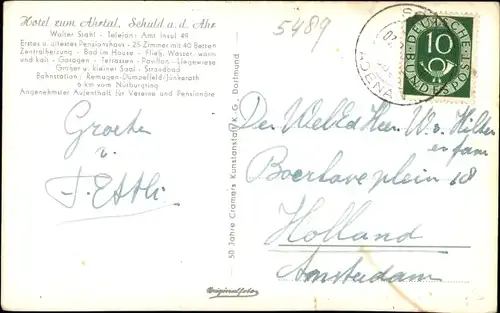 Hotel zum Ahrtal, Schuld a. d. Ahr
Walter Stahl - Telefon: Amt Insul 49
Erstes u. ältestes Pensionshaus - 25 Zimmer mit 40 Betten
Zentralheizung - Bad im Hause - Fließ. Wasser, warm
und kalt - Garagen - Terrassen - Pavillon - Liegewiese
Großer u. kleiner Saal - Strandbad
Bahnstation: Remagen-Dümpelfeld-Jünkerath
6 km vom Nürburgring
Angenehmster Aufenthalt für Vereine und Pensionäre
5489
ADENA
DEUTSCHE
BUNDESPOST
10
Groeten
v.
50 Jahre Cramers Kunstanstalt K.G., Dortmund
Den WelEd Heer W. v. Hilten
en fam
Boerhaveplein 18
Holland
Amsterdam
Originalfoto